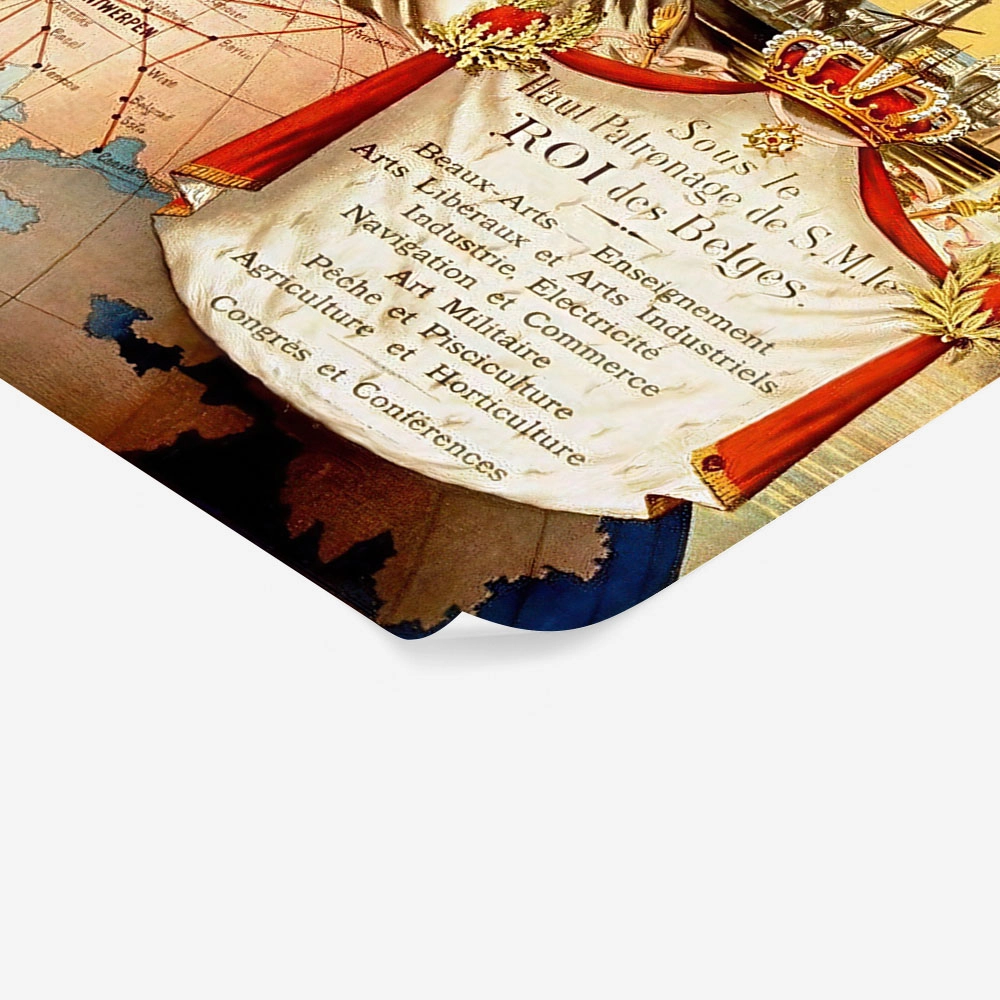 ANTWERPEN
Basel
Wien
Belgrad
Sofia
Sous le
Haut Patronage de S. M. le
ROI des Belges.
Beaux-Arts — Enseignement
Arts Libéraux et Arts Industriels
Industrie, Électricité
Navigation et Commerce
Art Militaire
Pêche et Pisciculture
Agriculture et Horticulture
Congrès et Conférences